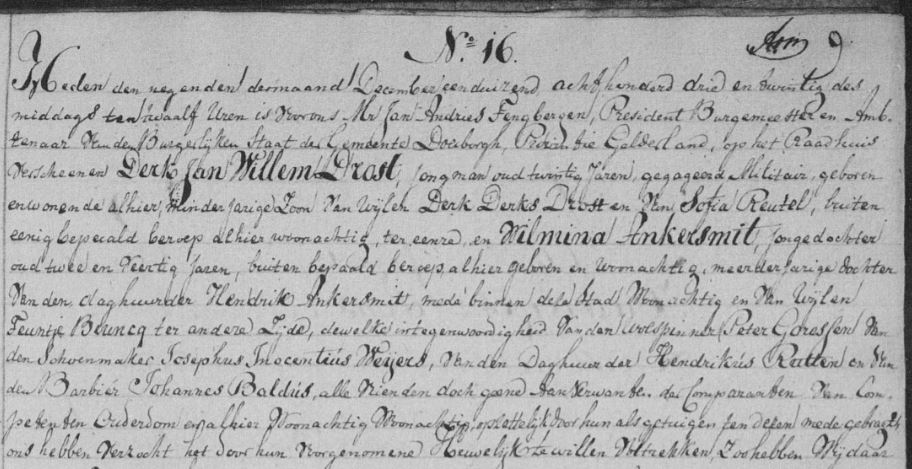 N.o 16.
9.
Heden den negenden dermaand December eenduizend achthonderd drie en twintig des
middags ten twaalf Uren is voor ons Mr Jan Andries Fengbergen, President Burgemeester en Amb-
tenaar van den Burgerlijken Staat der Gemeente Doesborgh, Provintie Gelderland, op het Raadhuis
Verscheenen Derk Jan Willem Drost, jongman oud twintig Jaren, gegageerd Militair, geboren
en wonende alhier, minderjarige Zoon van wijlen Derk Derks Drost en van Sofia Reutel, buiten
eenig bepaald beroep alhier woonachtig, ter eenre, en Wilmina Ankersmit, jongedochter
oud twee en veertig Jaren, buiten bepaald beroep, alhier geboren en woonachtig, meerderjarige dochter
van den daghuurder Hendrik Ankersmit, mede binnen dese stad Woonachtig en van wijlen
Teuntje ter andere Zijde, dewelke in tegenwoordigheid van den wolspinner Peter Goressen van
den Schoenmaker Josephus Inocentius Weijers, van den Daghuurder Hendrikus Rutten en van
den Barbier Johannes Baldus, alle vrienden doch geene Aanverwanten der Comparanten van Com-
petenten Ouderdom en alhier Woonachtig, opzettelijk door hun als getuigen ten dezen mede gebragt
ons hebben verzocht het door hun voorgenomene Huwelijk te willen voltrekken, Zoo hebben Wij daar